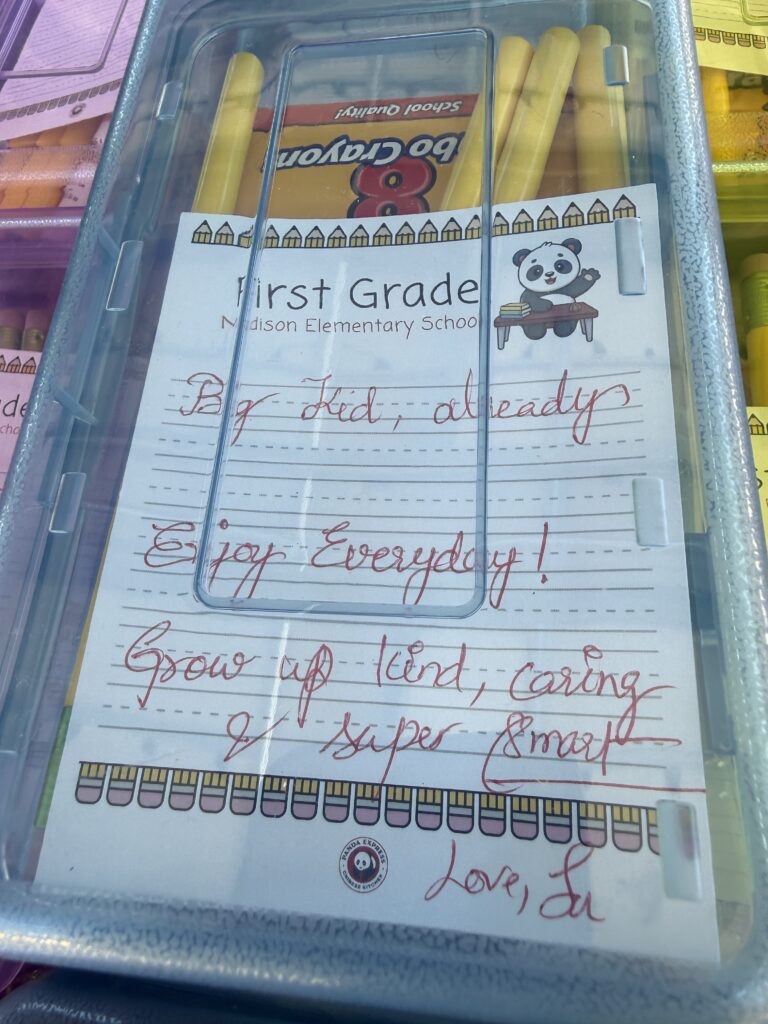 School Quality!
bo Crayon
8
First Grade
Madison Elementary School
Big Kid, already
Enjoy Everyday!
Grow up kind, caring
& super smart
PANDA EXPRESS
CHINESE KITCHEN
Love,